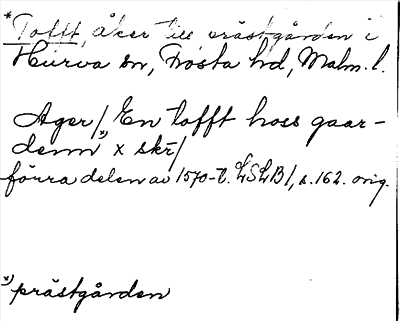 * Tofft, åker till prästgården i
Hurva sn, Frosta hd, Malm. l.
Ager/, En tofft hoss gaar-
denn *) x skr/
förra delen av 1570-t. LSLB/, s. 162. orig.
*) prästgården